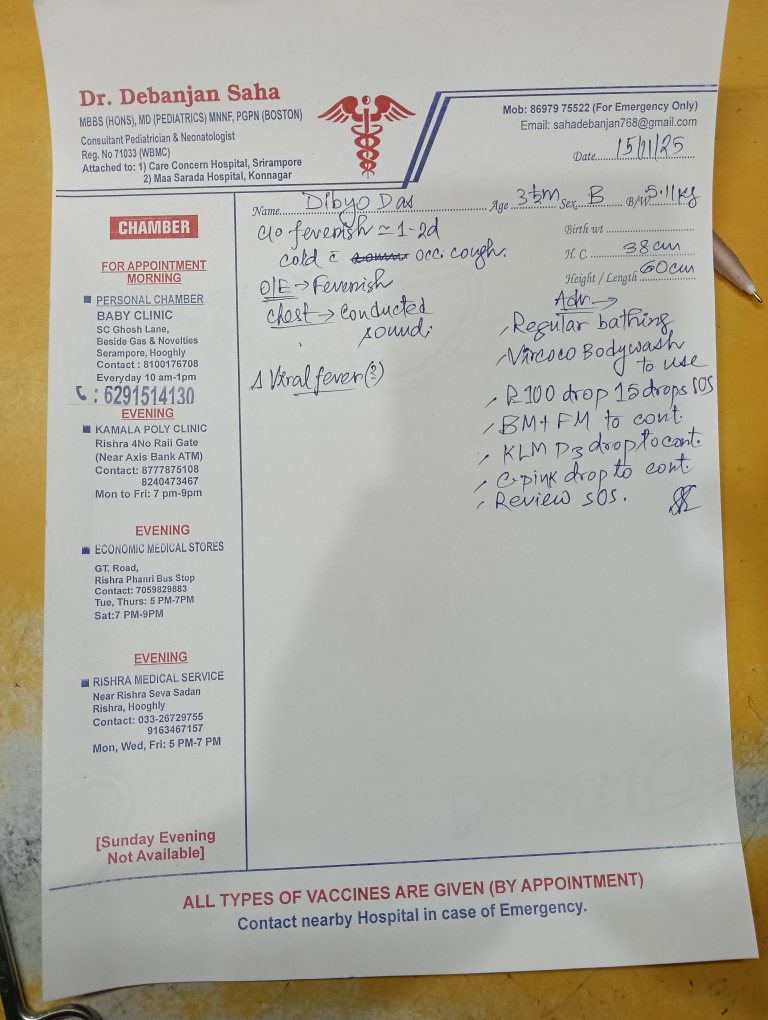 Dr. Debanjan Saha
MBBS (HONS), MD (PEDIATRICS) MNNF, PGPN (BOSTON)
Consultant Pediatrician & Neonatologist
Reg. No 71033 (WBMC)
Attached to: 1) Care Concern Hospital, Srirampore
2) Maa Sarada Hospital, Konnagar
Mob: 86979 75522 (For Emergency Only)
Email: sahadebanjan768@gmail.com
Date 15/11/25
Name Dibyo Das Age 3½m Sex B B/W 5.11kg
Birth wt
H. C 38cm
Height / Length 60cm
CHAMBER
FOR APPOINTMENT
MORNING
PERSONAL CHAMBER
BABY CLINIC
SC Ghosh Lane,
Beside Gas & Novelties
Serampore, Hooghly
Contact : 8100176708
Everyday 10 am-1pm
: 6291514130
EVENING
KAMALA POLY CLINIC
Rishra 4No Rail Gate
(Near Axis Bank ATM)
Contact: 8777875108
8240473467
Mon to Fri: 7 pm-9pm
EVENING
ECONOMIC MEDICAL STORES
GT. Road,
Rishra Phanri Bus Stop
Contact: 7059829883
Tue, Thurs: 5 PM-7PM
Sat:7 PM-9PM
EVENING
RISHRA MEDICAL SERVICE
Near Rishra Seva Sadan
Rishra, Hooghly
Contact: 033-26729755
9163467157
Mon, Wed, Fri: 5 PM-7 PM
[Sunday Evening
Not Available]
c/o feverish ≃ 1-2d
cold c̄ occ. cough.
O/E → Feverish
chest → conducted
sound;
Δ Viral fever (?)
Adv →
Regular bathing
Vircoco Bodywash
to use
R100 drop 15 drops SOS
BM + FM to cont.
KLM D3 drop to cont.
C-pink drop to cont.
Review SOS.
ALL TYPES OF VACCINES ARE GIVEN (BY APPOINTMENT)
Contact nearby Hospital in case of Emergency.